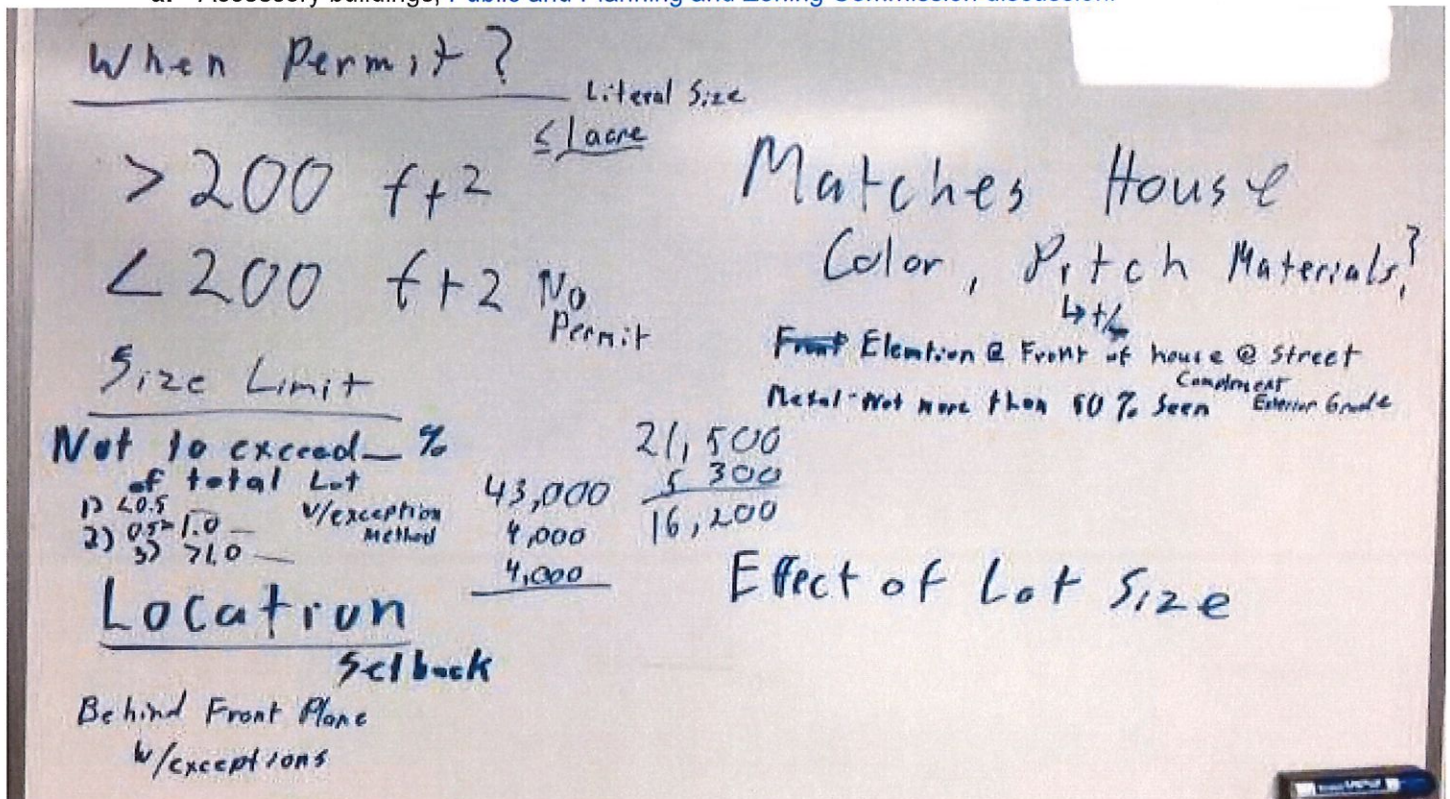 a. Accessory buildings, Public and Planning and Zoning Commission discussion.
When Permit?
Literal Size
≤ 1 acre
> 200 ft2
< 200 ft2 No
Permit
Size Limit
Not to exceed _ %
of total Lot
1) <0.5 _
2) 0.5-1.0 _
3) >1.0 _
w/exception
Method
43,000
4,000
4,000
21,500
5 300
16,200
Location
Setback
Behind Front Plane
w/exceptions
Matches House
Color, Pitch Materials?
↳ +/-
Front Elevation @ Front of house @ Street
Metal - Not more than 50 % Seen
Complment
Exterior Grade
Effect of Lot Size